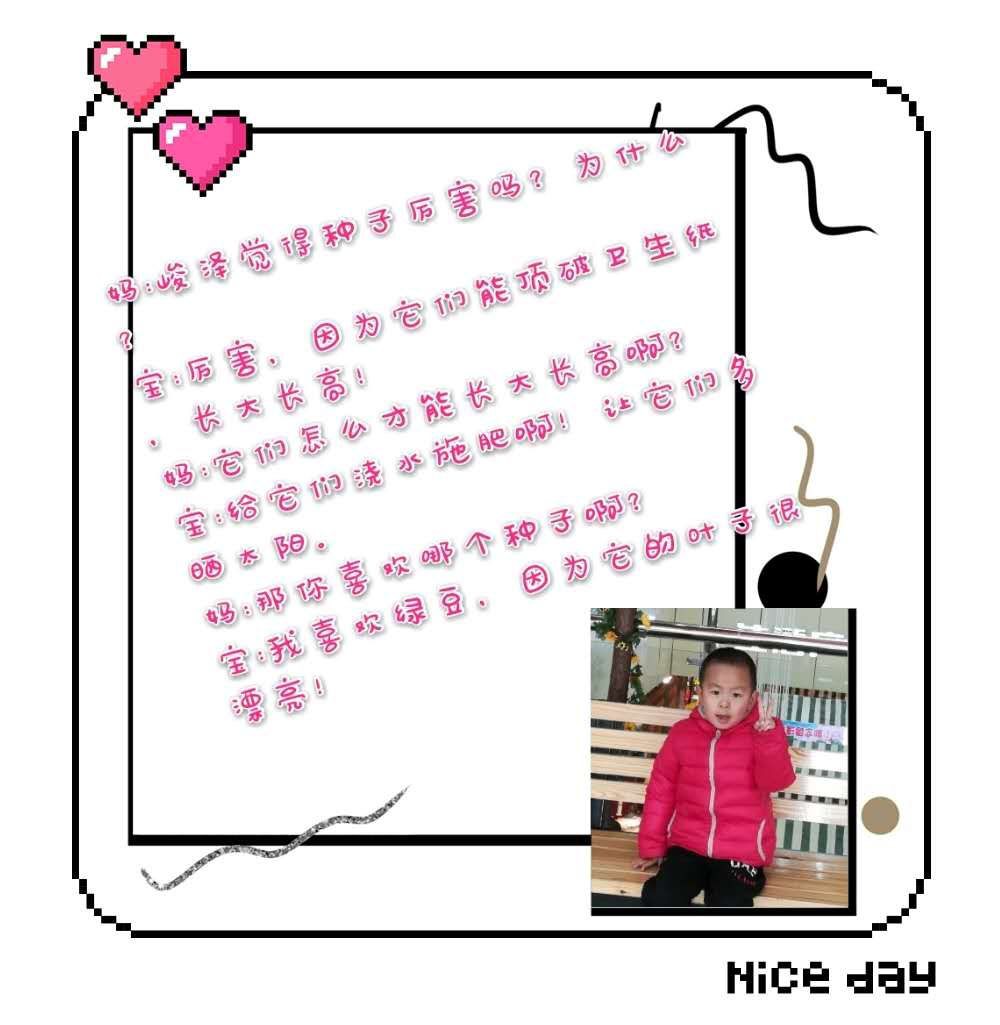 妈:峻泽觉得种子厉害吗?为什么
?
宝:厉害,因为它们能顶破卫生纸
,长大长高!
妈:它们怎么才能长大长高啊?
宝:给它们浇水施肥啊!让它们多
晒太阳。
妈:那你喜欢哪个种子啊?
宝:我喜欢绿豆,因为它的叶子很
漂亮!
Nice day